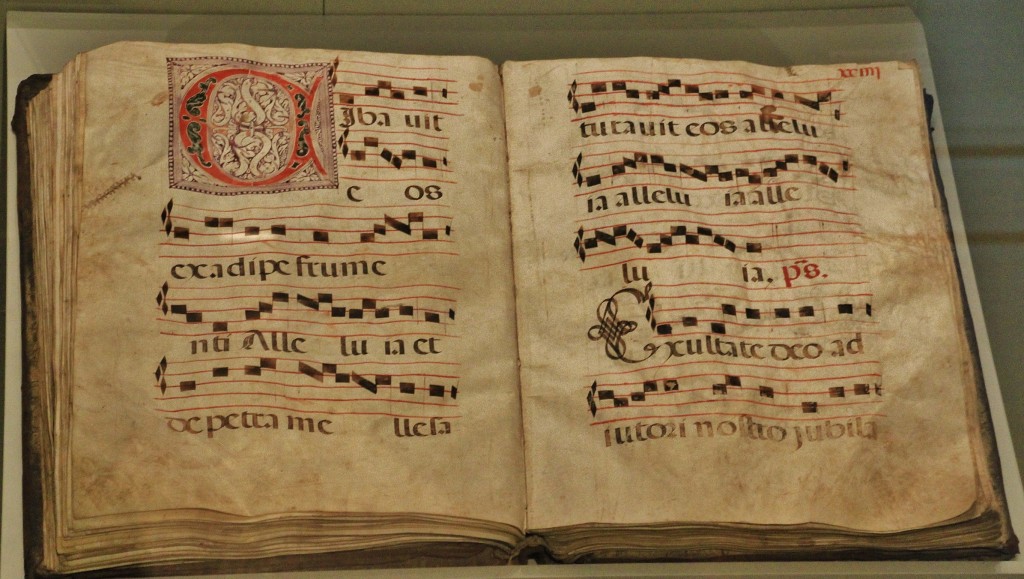 Ciba uit
e os
ex adipe frume
nti Alle lu ia et
de petra me llesa
xxiiij
tu ra uit eos a llelu
ia allelu ia alle
lu ia. ps.
Exultate deo ad
iutori nostro jubila